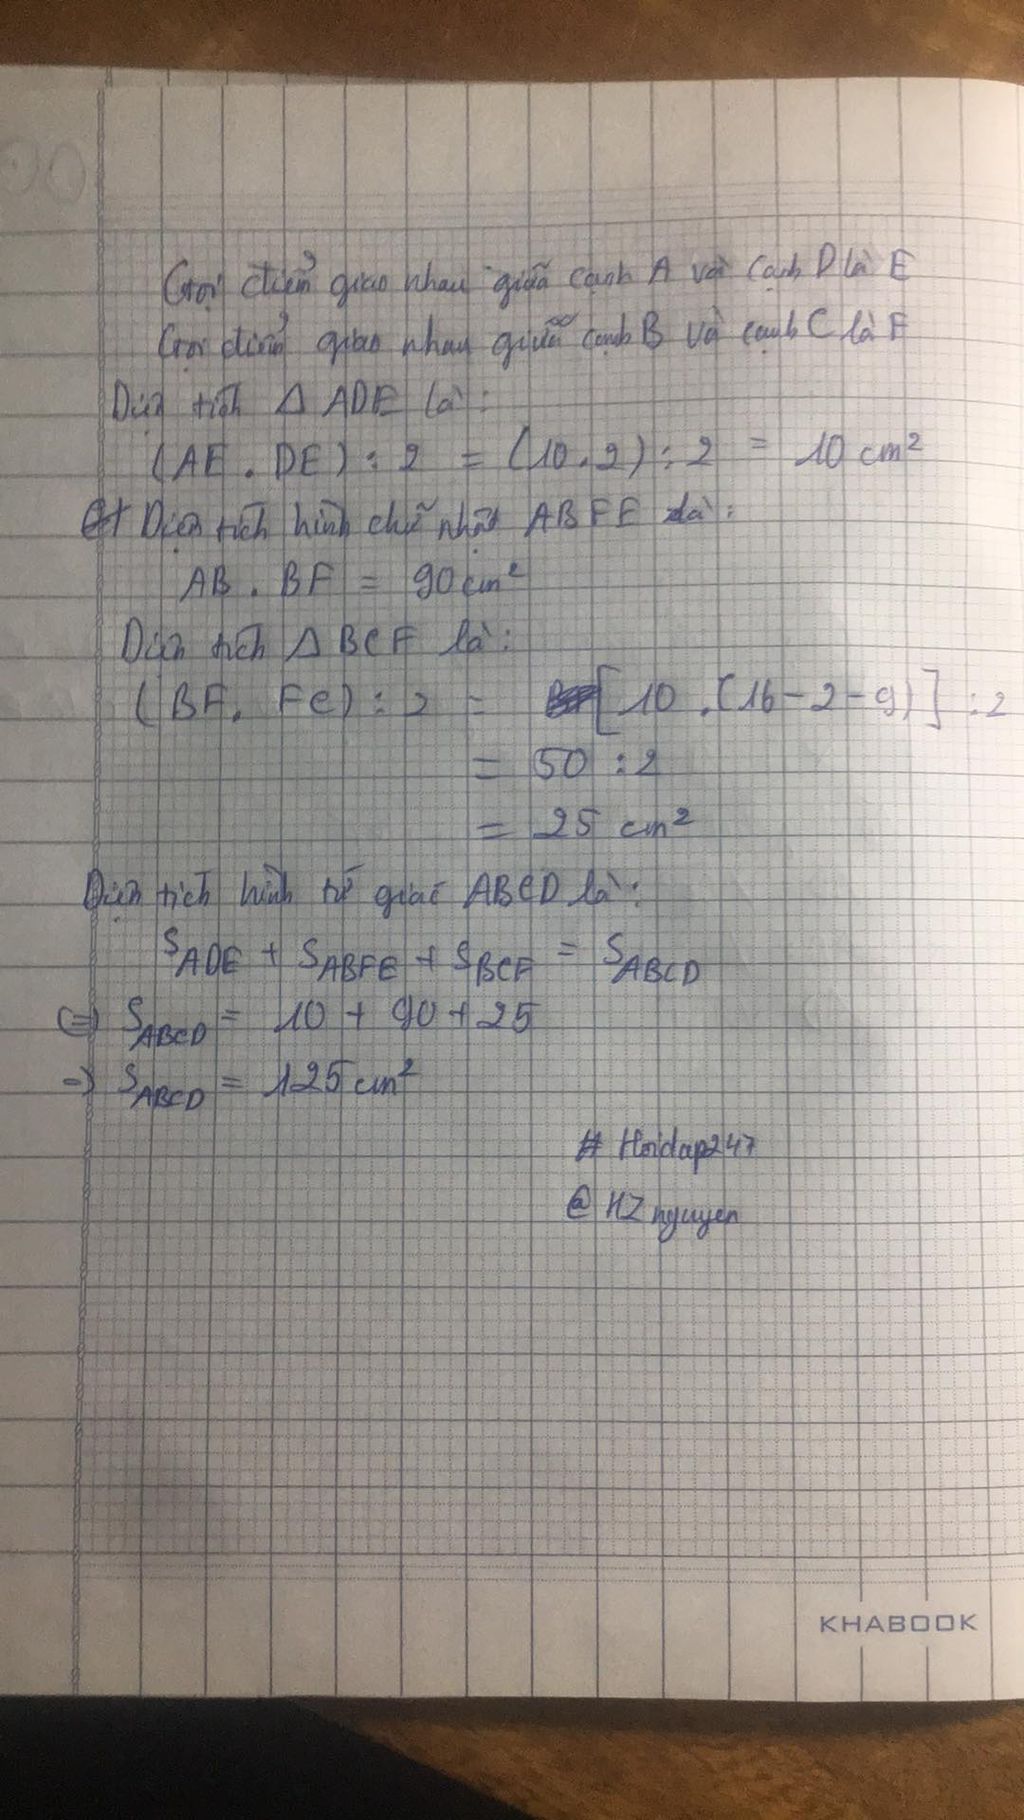 Gọi điểm giao nhau giữa cạnh A và cạnh D là E
Gọi điểm giao nhau giữa cạnh B và cạnh C là F
Diện tích Δ ADE là:
(AE . DE) : 2 = (10.2) : 2 = 10 cm²
Diện tích hình chữ nhật ABFE là:
AB . BF = 90 cm²
Diện tích Δ BCF là:
(BF. FC) : 2 = [10 .(16-2-9)] : 2
= 50 : 2
= 25 cm²
Diện tích hình tứ giác ABCD là:
S_ADE + S_ABFE + S_BCF = S_ABCD
(=) S_ABCD = 10 + 90 + 25
=) S_ABCD = 125 cm²
# Hoidap247
@ HZ nguyen
KHABOOK